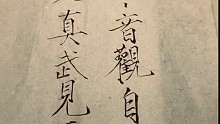 音觀自
真武見